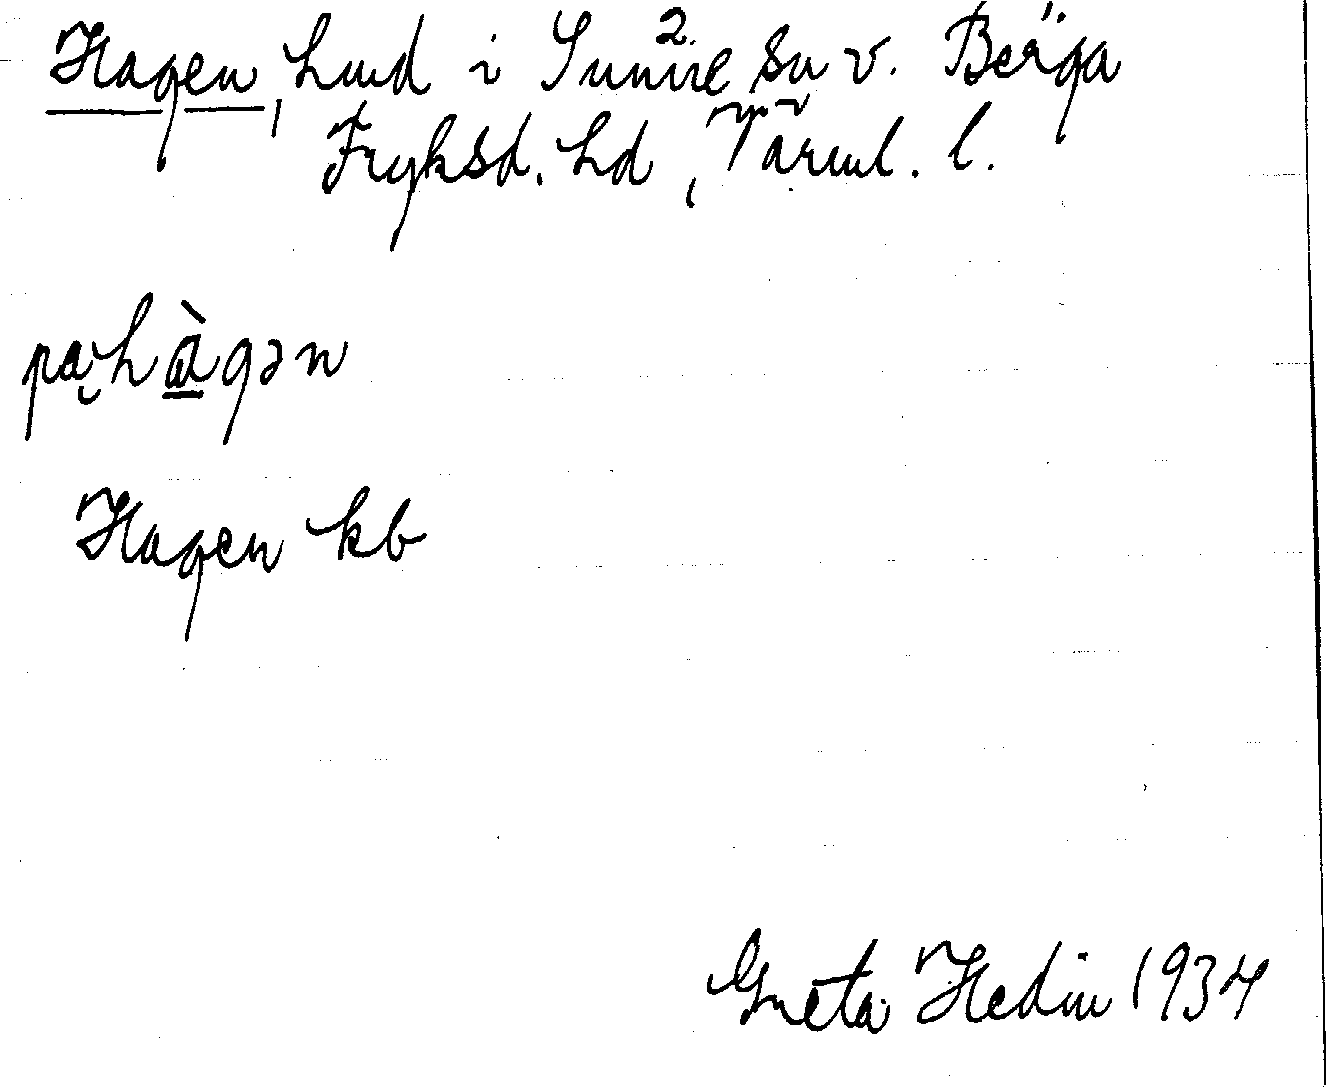 Hagen, hmd i Sunne² sn v. Berga
Fryksd. hd, Värml. l.
pą hàgən
Hagen kb
Greta Hedin 1934